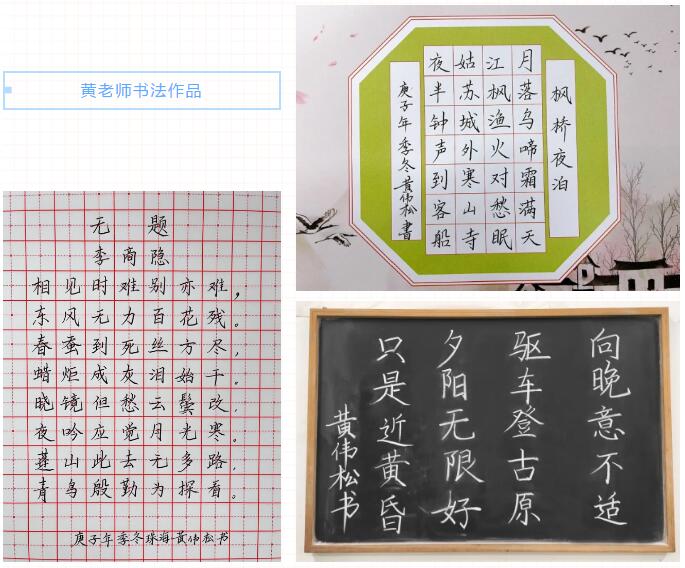 黄老师书法作品
枫桥夜泊
月落乌啼霜满天
江枫渔火对愁眠
姑苏城外寒山寺
夜半钟声到客船
庚子年季冬黄伟松书
无题
李商隐
相见时难别亦难，
东风无力百花残。
春蚕到死丝方尽，
蜡炬成灰泪始干。
晓镜但愁云鬓改，
夜吟应觉月光寒。
蓬山此去无多路，
青鸟殷勤为探看。
庚子年季冬珠海黄伟松书
向晚意不适
驱车登古原
夕阳无限好
只是近黄昏
黄伟松书